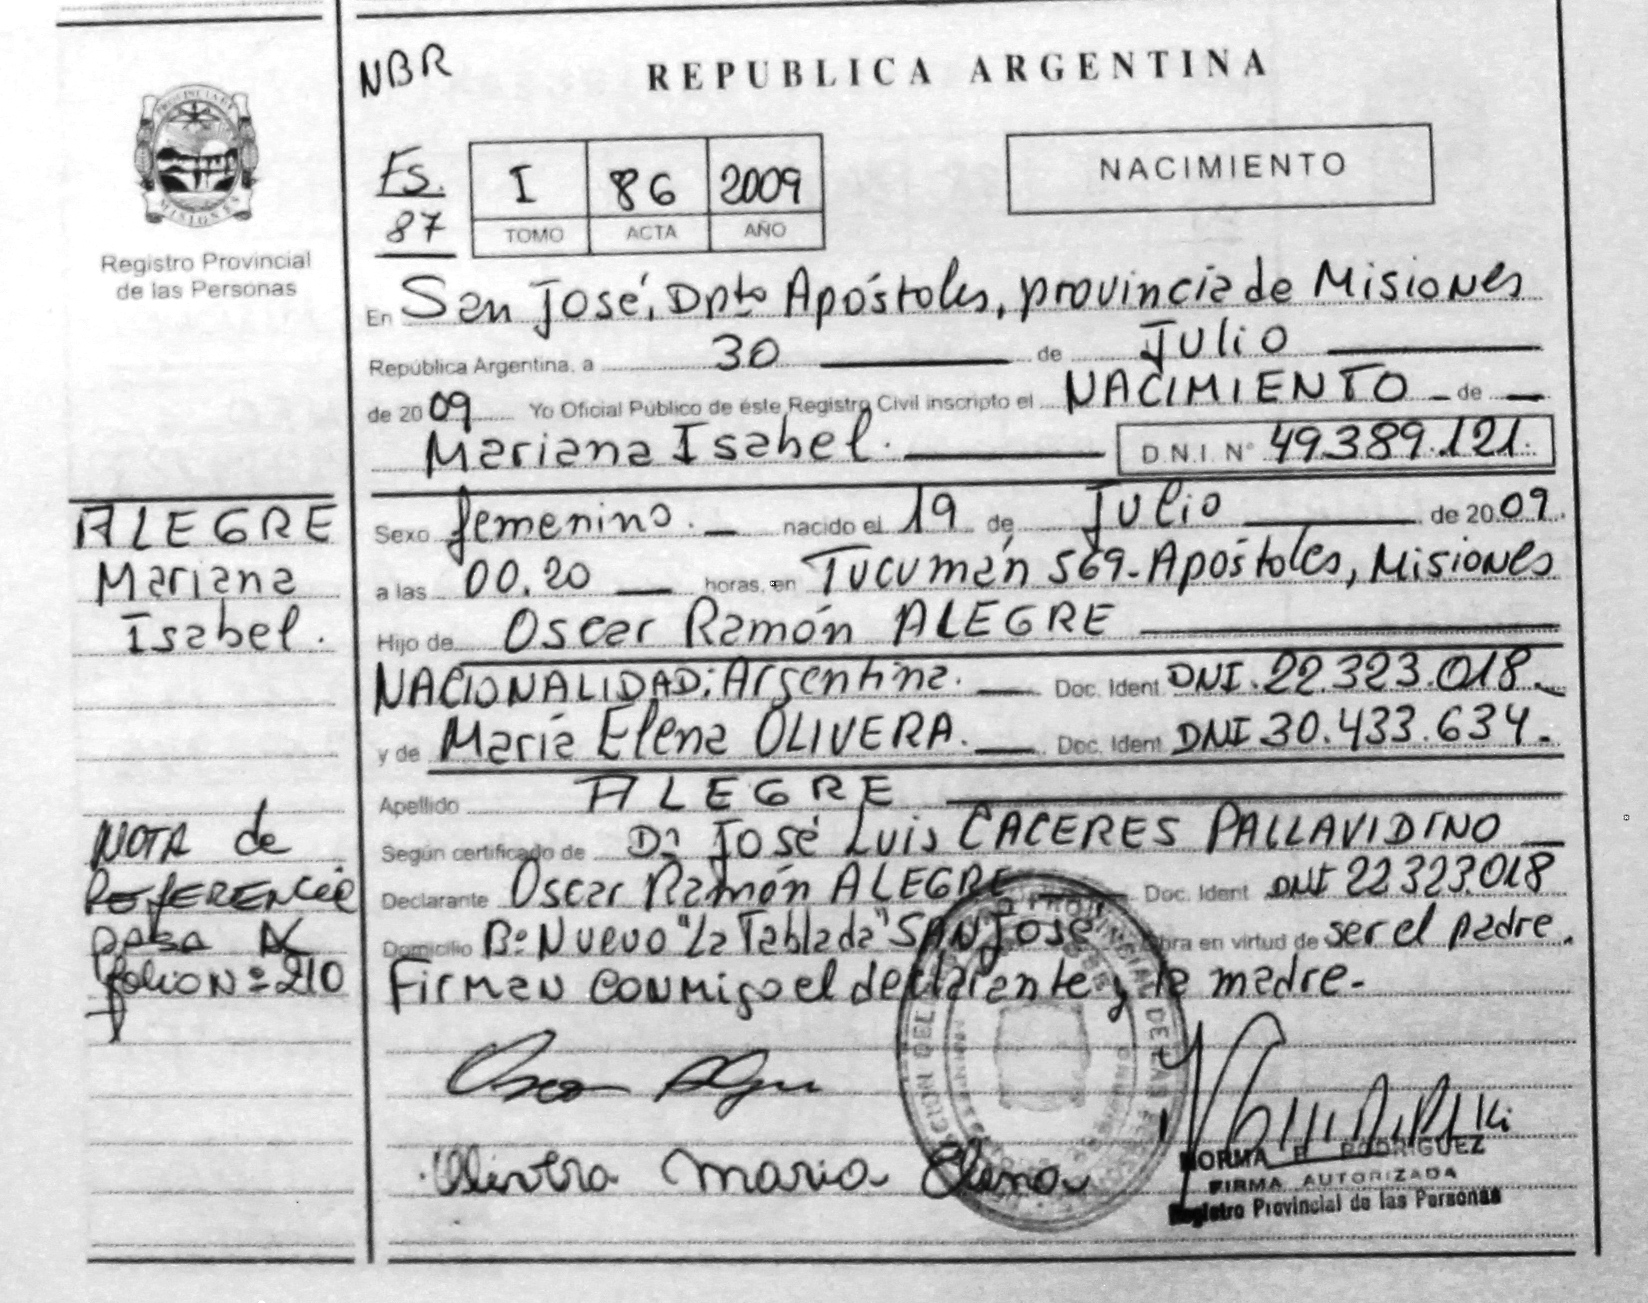 NBR
REPUBLICA ARGENTINA
PROVINCIA DE
MISIONES
Registro Provincial
de las Personas
Fs.
87
I 86 2009
TOMO ACTA AÑO
NACIMIENTO
En San José, Dpto Apóstoles, provincia de Misiones
República Argentina, a 30 de Julio
de 2009 Yo Oficial Público de éste Registro Civil inscripto el NACIMIENTO de
Mariana Isabel. D.N.I. N° 49.389.121.
ALEGRE
Mariana
Isabel.
Sexo femenino. nacido el 19 de Julio de 2009.
a las 00.20 horas, en Tucumán 569-Apóstoles, Misiones
Hijo de Oscar Ramón ALEGRE
NACIONALIDAD: Argentina. Doc. Ident DNI.22.323.018.
y de María Elena OLIVERA. Doc. Ident DNI 30.433.634.
Apellido ALEGRE
Según certificado de Dr José Luis CACERES PALLAVIDINO
Declarante Oscar Ramón ALEGRE Doc. Ident DNI 22323.018
Domicilio B° Nuevo "La Tablada" SAN JOSÉ bra en virtud de ser el padre.
Firman conmigo el declarante y la madre.-
NOTA de
REFERENCIA
PASA A
folio N° 210
Olivera Maria Elena
NORMA RODRIGUEZ
FIRMA AUTORIZADA
Registro Provincial de las Personas